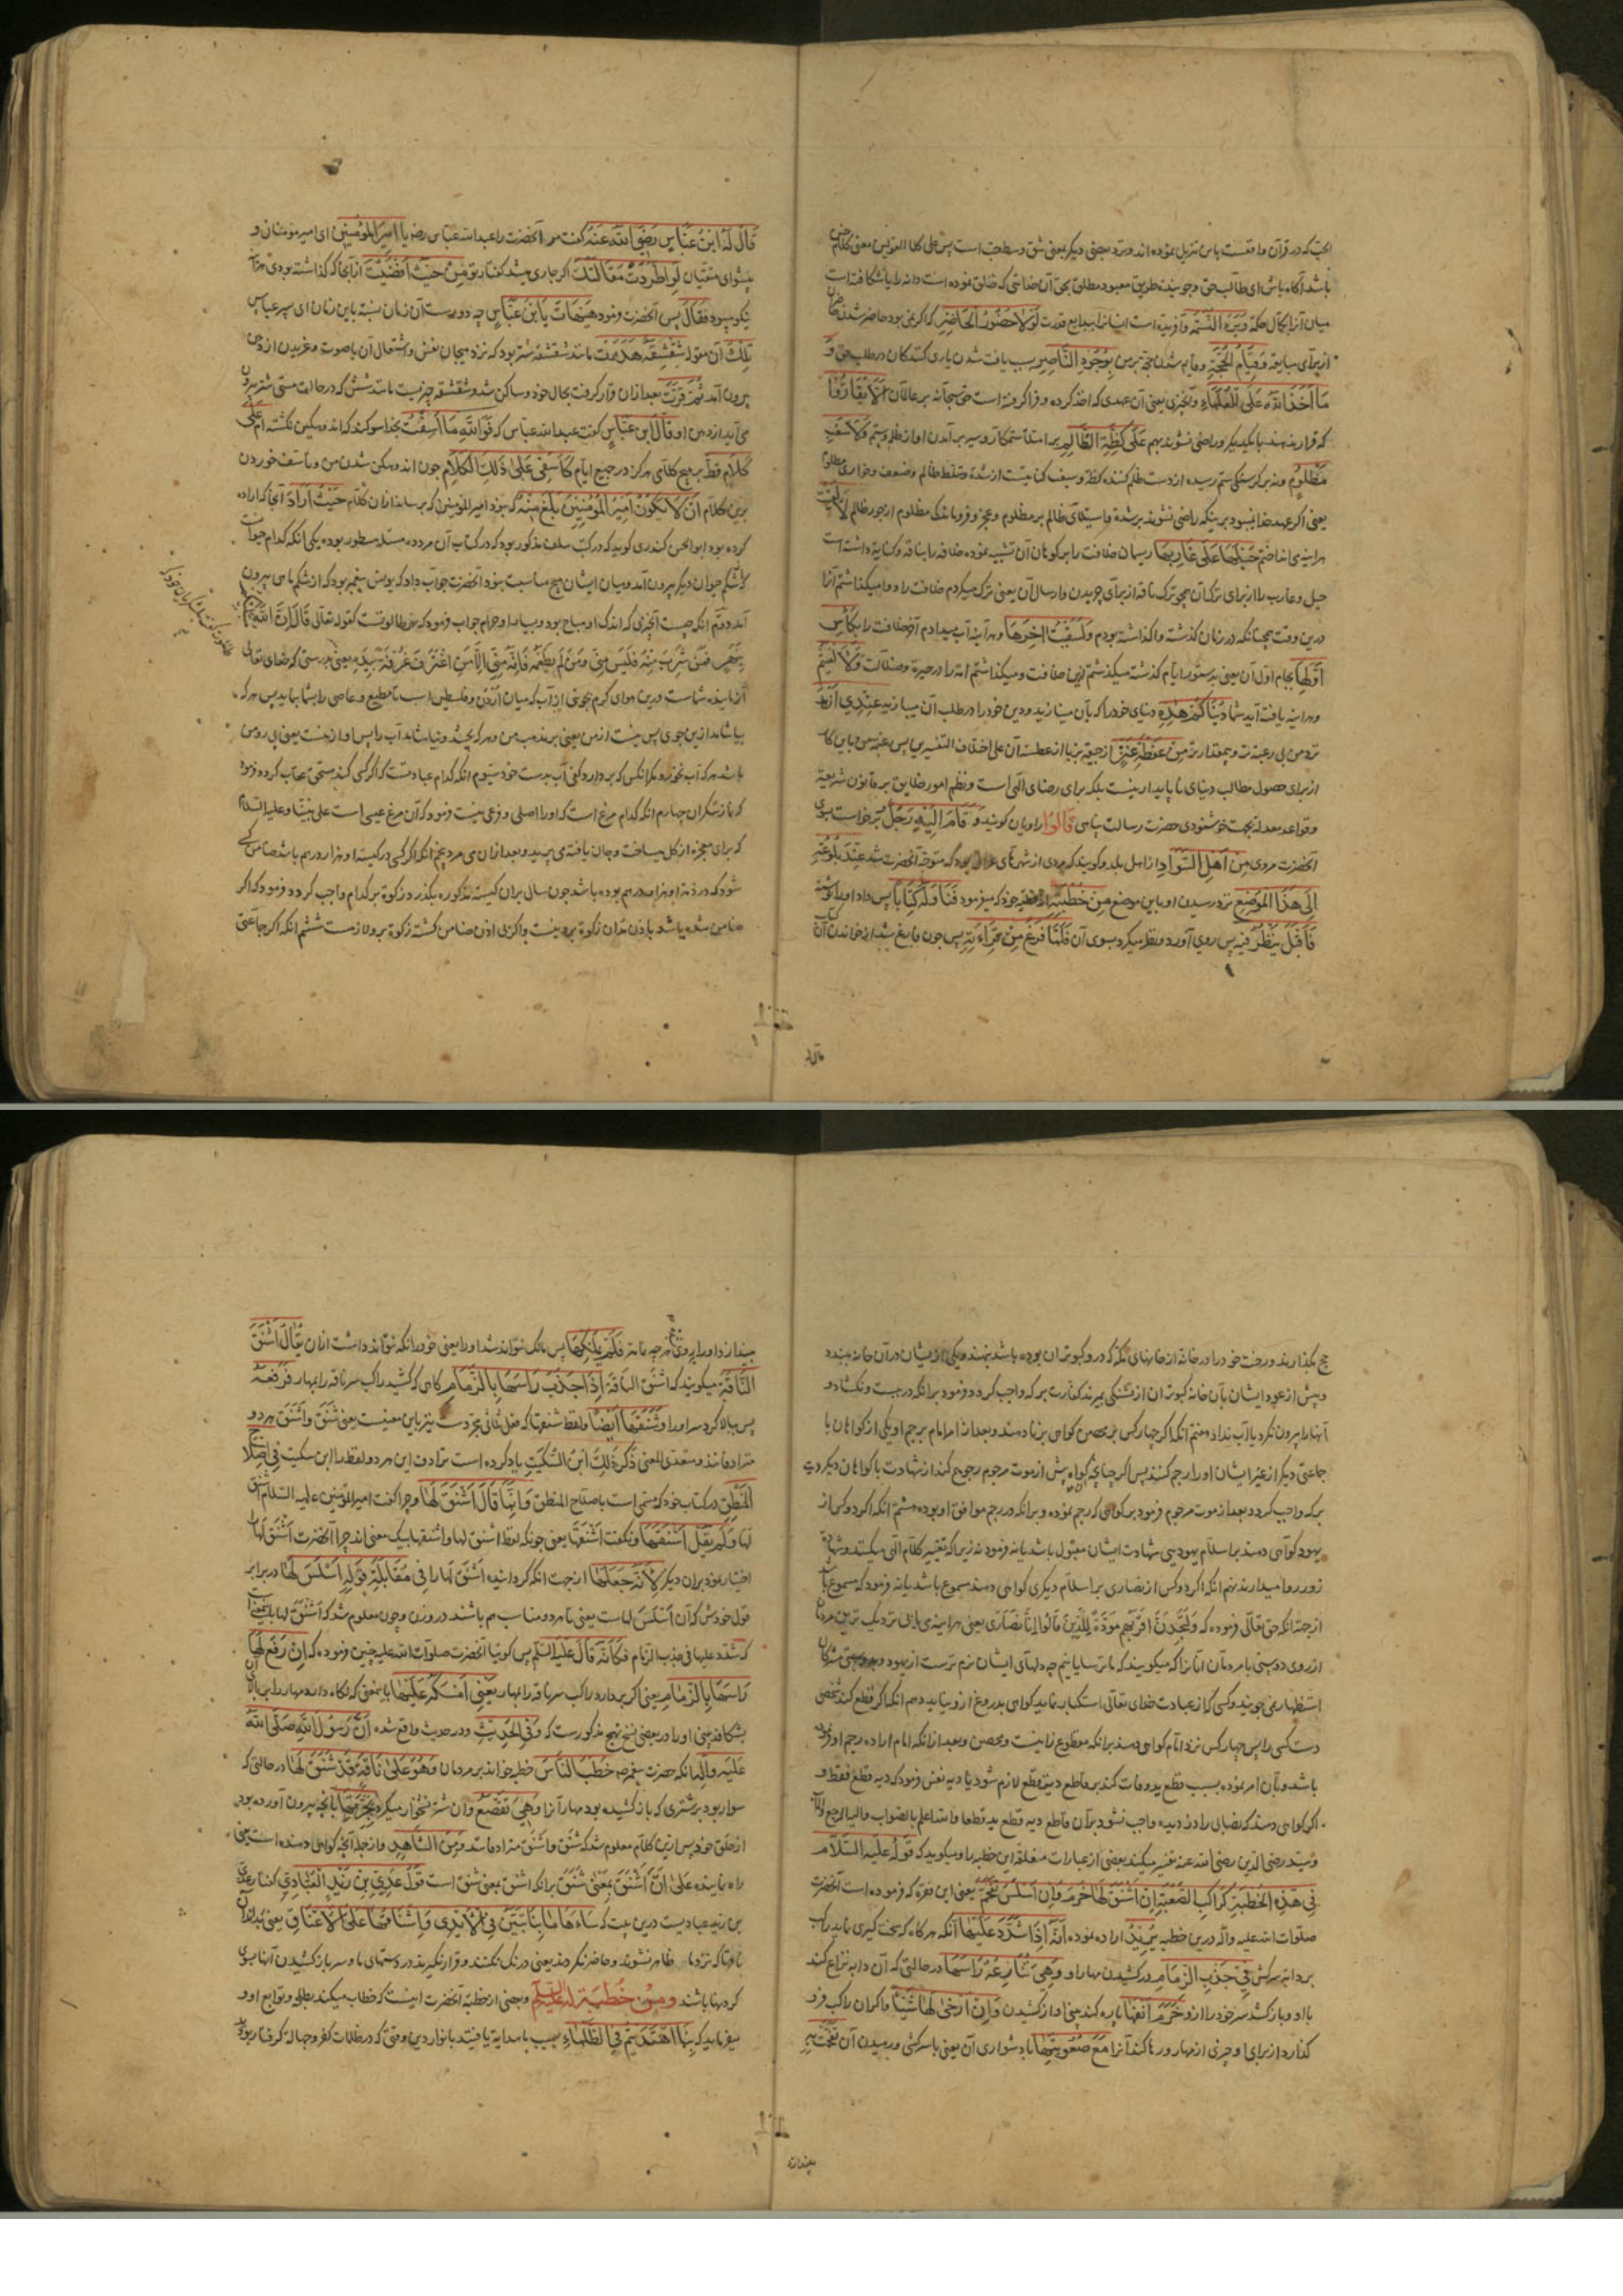 الحب که در قرآن واقعست باین تنزیل نموده‌اند و نزد بعضی دیگر یعنی شق وسط حب است پس علی کلا القولین معنی کلام چنین
باشد آگاه باش ای طالب حق وجوینده طریق معبود مطلق بحق آن خدائی که خلق نموده است دانه را یا شکافته است
میان آنرا بکمال حکمة وَبَرَءَ النَّسَمَةَ وآفریده است انسانرا ببدایع قدرت لَوْلَا حُضُورُ الْحَاضِرِ که اگر نمی بود حاضر شدن حاضران
از برای مبایعه وَقِيَامُ الْحُجَّةِ وقایم شدن حجة بر من بِوُجُودِ النَّاصِرِ بسبب یافت شدن یاری کنندگان در طلب حق وَ
مَا أَخَذَ اللَّهُ عَلَى الْعُلَمَاءِ وآنچیزی یعنی آن عهدی که اخذ کرده و فرا گرفته است حق سبحانه بر عالمان أَلَّا يُقَارُّوا
که قرار ندهند با یکدیگر وراضی نشوند بهم عَلَى كِظَّةِ الظَّالِمِ بر امتلاء ستمکار وسیر برآمدن او از ظلم وستم وَلَا سَغَبِ
مَظْلُومٍ ونه بر گرسنگی ستم رسیده از دست ظلم کننده کظه وسغب کنایتست از شدة وتسلط ظالم وضعف وخواری مظلوم
یعنی اگر عهد خدا نمیبود بر اینکه راضی نشوند بر شدة واستیلای ظالم بر مظلوم وعجز وفروماندگی مظلوم از جور ظالم لَأَلْقَيْتُ
هر اینه می انداختم حَبْلَهَا عَلَى غَارِبِهَا ریسمان خلافت را بر کوهان آن تشبیه نموده خلافه را بناقه وکنایة داشته است
حبل وغارب را از برای ترک آن همچو ترک ناقه از برای چریدن وارسال آن یعنی ترک میکردم خلافت را ووا میگذاشتم آنرا
درین وقت همچنانکه در زمان گذشته واگذاشته بودم وَلَسَقَيْتُ آخِرَهَا وهر آینه آب میدادم آخر خلافت را بِكَأْسِ
أَوَّلِهَا بجام اول آن یعنی بدستور ایام گذشته میگذشتم ازین خلافت ومیگذاشتم امة را در حیرة وضلالت وَلَأَلْفَيْتُمْ
وهر اینه یافته‌اید شما دُنْيَاكُمْ هَذِهِ دنیای خود را که بآن مینازید ودین خود را در طلب آن میبازید عِنْدِي أَزْهَدَ
نزد من بی رغبة تر وبیمقدار تر مِنْ عَفْطَةِ عَنْزٍ از جیفه بز یا از عطسه آن علی اختلاف التفسیرین پس رغبة من باین کار
از برای حصول مطالب دنیای ناپایدار نیست بلکه برای رضای الهی است ونظم امور خلایق بر قانون شریعة
وقواعد معدله بجهت خوشنودی حضرت رسالت پناهی قَالُوا راویان گویند وَقَامَ إِلَيْهِ رَجُلٌ برخاست بسوی
آنحضرت مردی مِنْ أَهْلِ السَّوَادِ از اهل بلد وگویند که مردی از شهرهای عراق بود که متوجه آنحضرت شد عِنْدَ بُلُوغِهِ
إِلَى هَذَا الْمَوْضِعِ نزد رسیدن او باین موضع مِنْ خُطْبَتِهِ از خطبه خود که میفرمود فَنَاوَلَهُ كِتَابًا پس داد او را نوشته
فَأَقْبَلَ يَنْظُرُ فِيهِ پس روی آورد ونظر میکرد بسوی آن کتاب فَلَمَّا فَرَغَ مِنْ قِرَاءَتِهِ پس چون فارغ شد از خواندن آن
قال له
قَالَ لَهُ ابْنُ عَبَّاسٍ رَضِيَ اللَّهُ عَنْهُ گفت مر آنحضرت را عبدالله عباس رضه يَا أَمِيرَ الْمُؤْمِنِينَ ای امیر مؤمنان و
پیشوای متقیان لَوِ اطَّرَدَتْ مَقَالَتُكَ اگر جاری میشد گفتار تو مِنْ حَيْثُ أَفْضَيْتَ از آنجا که گذاشته بودی هر آینه
نیکو میبود فَقَالَ پس آنحضرت فرمود هَيْهَاتَ يَا ابْنَ عَبَّاسٍ چه دور است آن زمان نسبة باین زمان ای پسر عباس
تِلْكَ آن مقوله شِقْشِقَةٌ هَدَرَتْ مانند شقشقه شتر بود که نزد هیجان نفس واشتعال آن با صوت وغریدن از دهن
بیرون آمد ثُمَّ قَرَّتْ بعد از آن قرار گرفت بحال خود وساکن شد وشقشقه چیزیست مانند شش که در حالت مستی شتر بیرون
می آید از دهن او قَالَ ابْنُ عَبَّاسٍ گفت عبدالله عباس که فَوَاللَّهِ مَا أَسِفْتُ بخدا سوگند که اندوهگین نگشته‌ام عَلَى
كَلَامٍ قَطُّ بر هیچ کلامی هرگز در جمیع ایام كَأَسَفِي عَلَى ذَلِكَ الْكَلَامِ چون اندوهگین شدن من وتأسف خوردن
برین کلام أَنْ لَا يَكُونَ أَمِيرُ الْمُؤْمِنِينَ بَلَغَ مِنْهُ که نبود امیر المؤمنین که برساند از آن کلام حَيْثُ أَرَادَ آنجا که اراده
کرده بود ابوالحسن کندری گوید که در کتب سلف مذکور بود که در کتاب آن مرد ده مسئله مسطور بوده یکی آنکه کدام حیوانست
که از شکم حیوان دیگر بیرون آمد ومیان ایشان هیچ مناسبت نبود آنحضرت جواب داد که یونس پیغمبر بود که از شکم ماهی بیرون
آمد دوم آنکه چیست آنچیزی که اندک او مباح بود وبسیار او حرام جواب فرمود که نهر طالوتست کقوله تعالی قَالَ إِنَّ اللَّهَ مُبْتَلِيكُمْ
بِنَهَرٍ فَمَنْ شَرِبَ مِنْهُ فَلَيْسَ مِنِّي وَمَنْ لَمْ يَطْعَمْهُ فَإِنَّهُ مِنِّي إِلَّا مَنِ اغْتَرَفَ غُرْفَةً بِيَدِهِ یعنی بدرستی که خدای تعالی
آزماینده شماست درین هوای گرم بجوئی از آب که میان اردن وفلسطین است تا مطیع وعاصی را بشما نماید پس هر که
بیاشامد ازین جوی پس نیست از من یعنی بر مذهب من وهر که نچشد ونیاشامد آب را پس او از منست یعنی پیرو من
باشد هر که آب نخورد مگر آنکس که بردارد کفی آب بدست خود سیوم آنکه کدام عبادتست که اگر کسی کند مستحق عقاب گردد فرمود
که نماز سکران چهارم آنکه کدام مرغ است که او را اصلی وفرعی نیست فرمود که آن مرغ عیسی است علی نبینا وعلیه السلام
که برای معجزه از گل میساخت وجان یافته می پرید وبعد از آن می مرد پنجم آنکه اگر کسی در کیسه او هزار درهم باشد ضامن کسی
شود که در ذمة او هزار درهم بوده باشد چون سالی بر آن کیسه مذکوره بگذرد زکوة بر کدام واجب گردد فرمود که اگر
ضامن شده باشد باذن مدیون زکوة برو نیست واگر بی اذن ضامن گشته زکوة برو لازمست ششم آنکه اگر جماعتی
حج بگذارند ورخت خود را در خانه از خانهای مکه که درو کبوتران بوده باشد بنهند ویکی از ایشان در آن خانه ببندد
وپیش از عود ایشان بآن خانه کبوتران از تشنگی بمیرند کفارت بر که واجب گردد فرمود بر آنکه در ببست ونگشاد و
آنها را بیرون نکرد یا آب نداد هفتم آنکه اگر چهار کس بر محصن گواهی بزنا دهند وبعد از امر امام برجم او یکی از گواهان با
جماعتی دیگر از غیر ایشان او را رجم کنند پس اگر چنانچه گواه پیش از موت مرجوم رجوع کند از شهادت با گواهان دیگر دیة
بر که واجب گردد بعد از موت مرجوم فرمود بر گواهی که رجم نموده وبر آنکه در رجم موافق او بوده هشتم آنکه اگر دو کس از
یهود گواهی دهند بر اسلام یهودیی شهادت ایشان مقبول باشد یا نه فرمود نه زیرا که تغییر کلام الهی میکنند وشهادة
زور روا میدارند نهم آنکه اگر دو کس از نصاری بر اسلام دیگری گواهی دهند مسموع باشد یا نه فرمود که مسموع باشد
از جهة آنکه حق تعالی فرموده که وَلَتَجِدَنَّ أَقْرَبَهُمْ مَوَدَّةً لِلَّذِينَ قَالُوا إِنَّا نَصَارَى یعنی هر اینه می یابی نزدیک ترین مردمان
از روی دوستی با مؤمنان آنانرا که میگویند که ما ترسایانیم چه دلهای ایشان نرم ترست از یهود
استظهار می جویند وکسی که از عبادت خدای تعالی استکبار ننماید گواهی بدروغ ازو نیاید دهم آنکه اگر قطع کند شخصی
دست کسی را پس چهار کس نزد امام گواهی دهند بر آنکه مقطوع زانیست ومحصن وبعد از آنکه امام اراده رجم او فرموده
باشد وبآن امر نموده بسبب قطع ید وفات کند بر قاطع دیة قطع لازم شود یا دیه نفس فرمود که دیه قطع فقط و
اگر گواهی دهند که نصابی را دزدیده واجب نشود بر آن قاطع دیه قطع ید قطعا والله اعلم بالصواب والیه المرجع والمآب
وسید رضی الدین رضی الله عنه تفسیر میکند بعضی از عبارات مغلقه این خطبه را ومیگوید که قَوْلُهُ عَلَيْهِ السَّلَامُ
فِي هَذِهِ الْخُطْبَةِ كَرَاكِبِ الصَّعْبَةِ إِنْ أَشْنَقَ لَهَا خَرَمَ وَإِنْ أَسْلَسَ تَقَحَّمَ یعنی این فقره که فرموده است آنحضرت
صلوات الله علیه وآله درین خطبه يُرِيدُ اراده نموده أَنَّهُ إِذَا شَدَّدَ عَلَيْهَا آنکه هرگاه که سخت گیری نماید راکب
بر دابه سرکش فِي جَذْبِ الزِّمَامِ در کشیدن مهار او وَهِيَ تُنَازِعُهُ رَأْسَهَا در حالتی که آن دابه نزاع کند
با او وباز کشد سر خود را ازو خَرَمَ أَنْفَهَا پاره کند بینی او از کشیدن وَإِنْ أَرْخَى لَهَا شَيْئًا واگر آن راکب فرو
گذارد از برای او چیزی از مهار ورها کند آنرا مَعَ صُعُوبَتِهَا با دشواری آن یعنی با سرکشی ورمیدن آن تَقَحَّمَتْ بِهِ
بیندازد
بیندازد او را بروی هر چه تمامتر فَلَمْ يَمْلِكْهَا پس مالک نتواند شد او را یعنی خود را نگه نتواند داشت از آن يُقَالُ أَشْنَقَ
النَّاقَةَ میگویند که اشنق الناقة إِذَا جَذَبَ رَأْسَهَا بِالزِّمَامِ گاهی که کشید راکب سر ناقه را بمهار فَرَفَعَهُ
پس بالا کرد سر او را وَشَنَقَهَا أَيْضًا ولفظ شنقها که فعل ثلاثی مجرد ست نیز باین معنیست یعنی شَنَقَ وأَشْنَقَ هر دو
مترادفانند ومتعدی المعنی ذَكَرَ ذَلِكَ ابْنُ السِّكِّيتِ یاد کرده است ترادف این هر دو لفظ را ابن سکیت فِي إِصْلَاحِ
الْمَنْطِقِ در کتاب خود که مسمی است باصلاح المنطق وَإِنَّمَا قَالَ أَشْنَقَ لَهَا وچرا گفت امیر المؤمنین علیه السلام اشنق
لها وَلَمْ يَقُلْ أَشْنَقَهَا ونگفت اشنقها یعنی چونکه لفظ اشنق لها واشنقها بیک معنی‌اند چرا آنحضرت اشنق لها
اختیار نمود بر آن دیگر لِأَنَّهُ جَعَلَهَا از جهت آنکه گردانیده اشنق لها را فِي مُقَابَلَةِ قَوْلِهِ أَسْلَسَ لَهَا در برابر
قول خودش که آن أَسْلَسَ لهاست یعنی تا هر دو مناسب هم باشند در وزن وچون معلوم شد که اشنق لها بمعنی آنست
که شدد علیها فی جذب الزمام فَكَأَنَّهُ قَالَ عَلَيْهِ السَّلَمُ پس گوئیا آنحضرت صلوات الله علیه چنین فرموده که إِنْ رَفَعَ لَهَا
رَأْسَهَا بِالزِّمَامِ یعنی اگر بردارد راکب سر ناقه را بمهار يَعْنِي أَمْسَكَهُ عَلَيْهَا باینمعنی که نگاه دارد مهار را ببالای آن
بشکافد بینی او را ودر بعضی نسخ نهج مذکورست که وَفِي الْحَدِيثِ ودر حدیث واقع شده أَنَّ رَسُولَ اللَّهِ صَلَّى اللَّهُ
عَلَيْهِ وَآلِهِ آنکه حضرت پیغمبر صه خَطَبَ النَّاسَ خطبه خواند بر مردمان وَهُوَ عَلَى نَاقَةٍ قَدْ شَنَقَ لَهَا در حالتی که
سوار بود بر شتری که باز کشیده بود مهار آنرا وَهِيَ تَقْصَعُ وآن شتر نشخوار میکرد بِجِرَّتِهَا بآنچه بیرون آورده بود
از حلق خود پس ازین کلام معلوم شد که شنق واشنق مترادفانند وَمِنَ الشَّاهِدِ واز جمله آنچه گواهی دهنده است یعنی
راه نماینده عَلَى أَنَّ أَشْنَقَ بِمَعْنَى شَنَقَ بر آنکه اشنق بمعنی شنق است قَوْلُ عَدِيِّ بْنِ زَيْدٍ الْعِبَادِيِّ گفتار عدی
بن زید عبادیست درین بیت که سَاءَهَا مَا بِنَا تَبَيَّنَ فِي الْأَيْدِي وَإِشْنَاقُهَا عَلَى الْأَعْنَاقِ یعنی بد اند آن
ناقها که نزد ما ظاهر نشوند وحاضر نگردند یعنی درنگ نکنند وقرار نگیرند در دستهای ما وسر باز کشیدن آنها بسوی
گردنها باشند وَمِنْ خُطْبَةٍ لَهُ عَلَيْهِ السَّلَمُ وبعضی از خطبه آنحضرت اینست که خطاب میکند بطلحه وتوابع او و
میفرماید که بِنَا اهْتَدَيْتُمْ فِي الظَّلْمَاءِ بسبب ما هدایة یافتید بانوار دین وقتی که در ظلمات کفر وجهاله گرفتار بودید